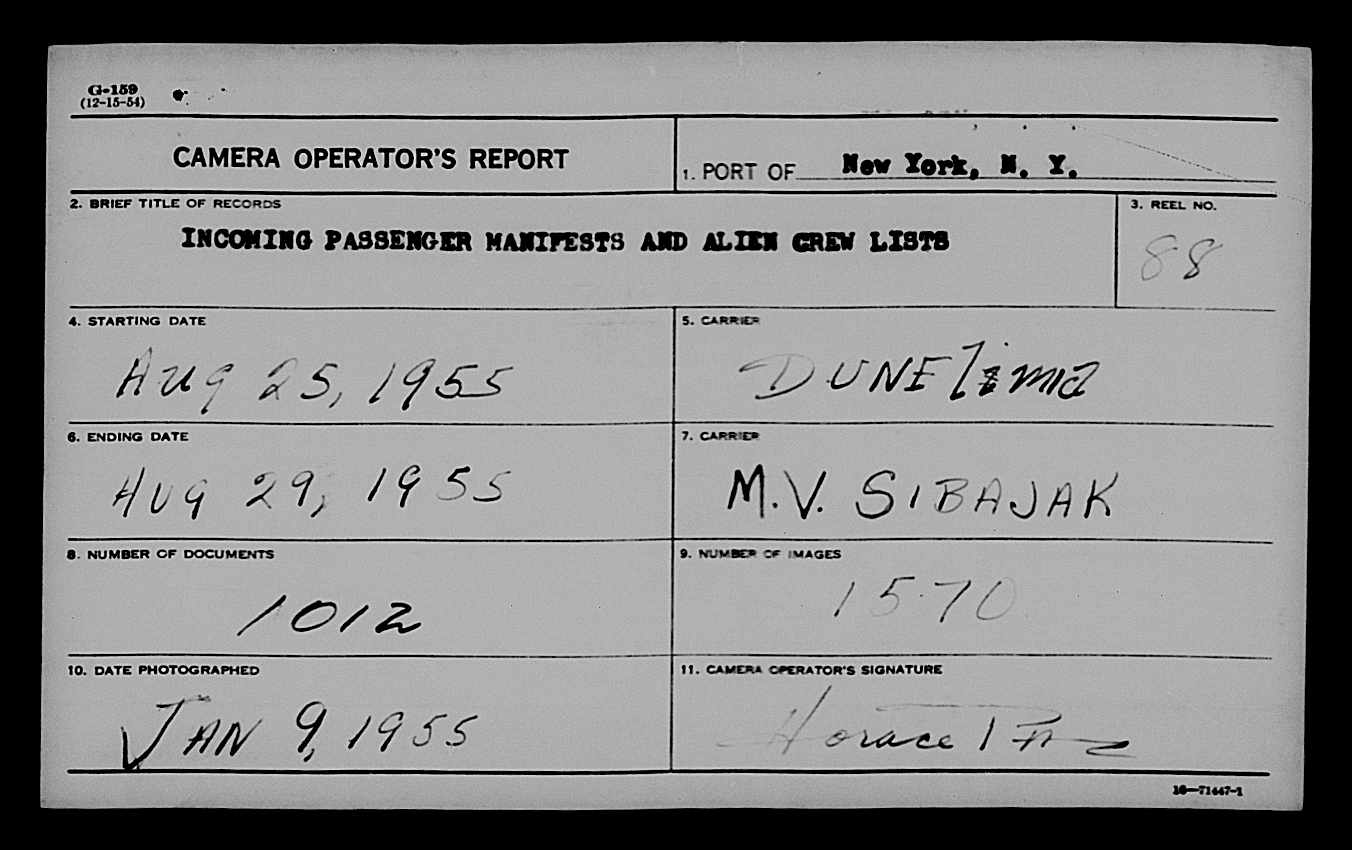 G-159
(12-15-54)
CAMERA OPERATOR'S REPORT
1. PORT OF New York, N. Y.
2. BRIEF TITLE OF RECORDS
INCOMING PASSENGER MANIFESTS AND ALIEN CREW LISTS
3. REEL NO.
88
4. STARTING DATE
AUG 25, 1955
5. CARRIER
DUNE
6. ENDING DATE
AUG 29, 1955
7. CARRIER
M.V. SIBAJAK
8. NUMBER OF DOCUMENTS
1012
9. NUMBER OF IMAGES
1570
10. DATE PHOTOGRAPHED
JAN 9, 1955
11. CAMERA OPERATOR'S SIGNATURE
Horace
16—71447-1